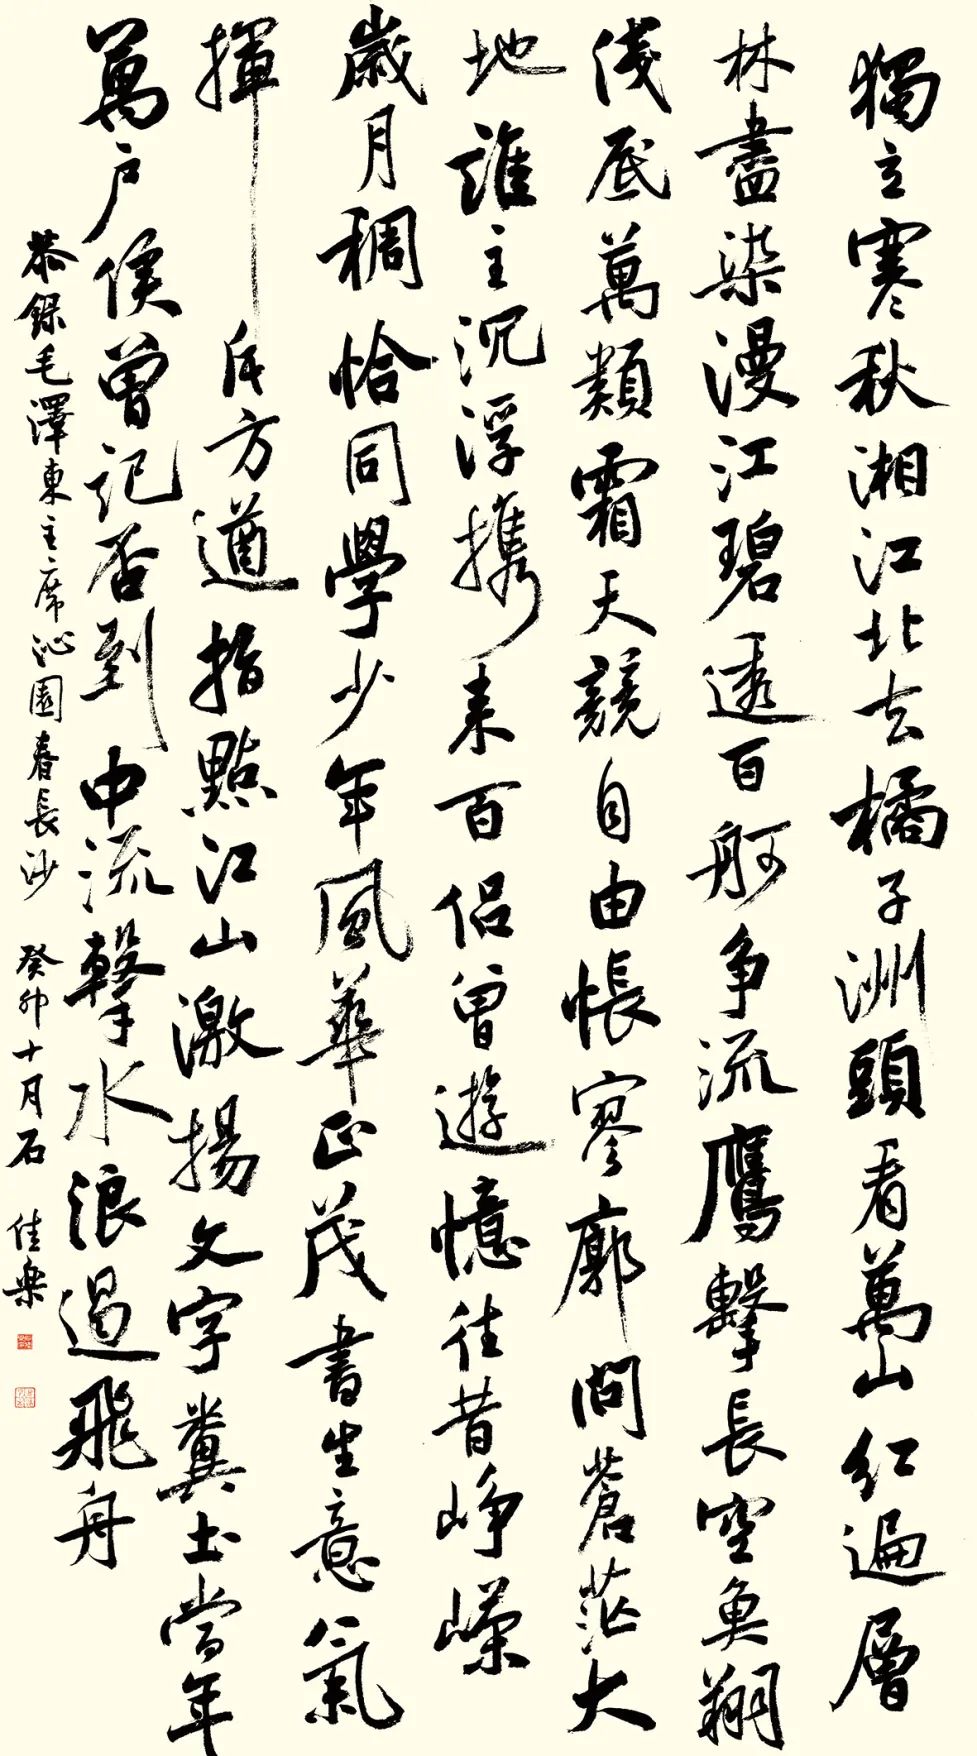 獨立寒秋湘江北去橘子洲頭看萬山紅遍層
林盡染漫江碧透百舸争流鷹擊長空魚翔
淺底萬類霜天競自由悵寥廓問蒼茫大
地誰主沉浮携来百侣曾遊憶往昔崢嶸
歲月稠恰同學少年風華正茂書生意氣
揮斥方遒指點江山激揚文字糞土當年
萬户侯曾記否到中流擊水浪遏飛舟
恭錄毛澤東主席沁園春長沙 癸卯十月石佳樂